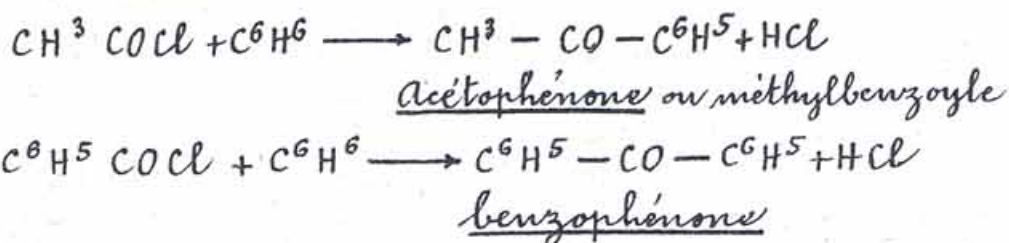 CH³ COCl + C⁶H⁶ ⟶ CH³ — CO — C⁶H⁵ + HCl
Acétophénone ou méthylbenzoyle
C⁶H⁵ COCl + C⁶H⁶ ⟶ C⁶H⁵ — CO — C⁶H⁵ + HCl
benzophénone